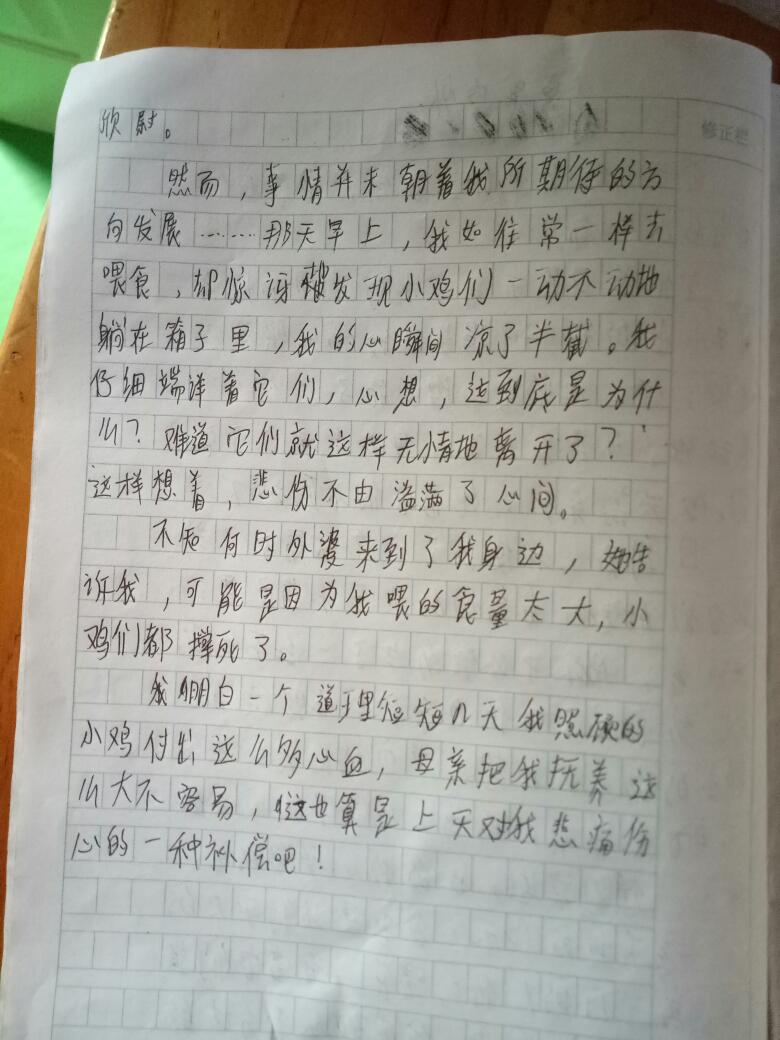 欣慰。
修正栏
然而，事情并未朝着我所期待的方
向发展……那天早上，我如往常一样去
喂食，却惊讶发现小鸡们一动不动地
躺在箱子里，我的心瞬间凉了半截。我
仔细端详着它们，心想，这到底是为什
么？难道它们就这样无情地离开了？
这样想着，悲伤不由溢满了心间。
不知何时外婆来到了我身边，她告
诉我，可能是因为我喂的食量太大，小
鸡们都撑死了。
我明白一个道理短短几天我照顾的
小鸡付出这么多心血，母亲把我抚养这
么大不容易，这也算是上天对我悲痛伤
心的一种补偿吧！